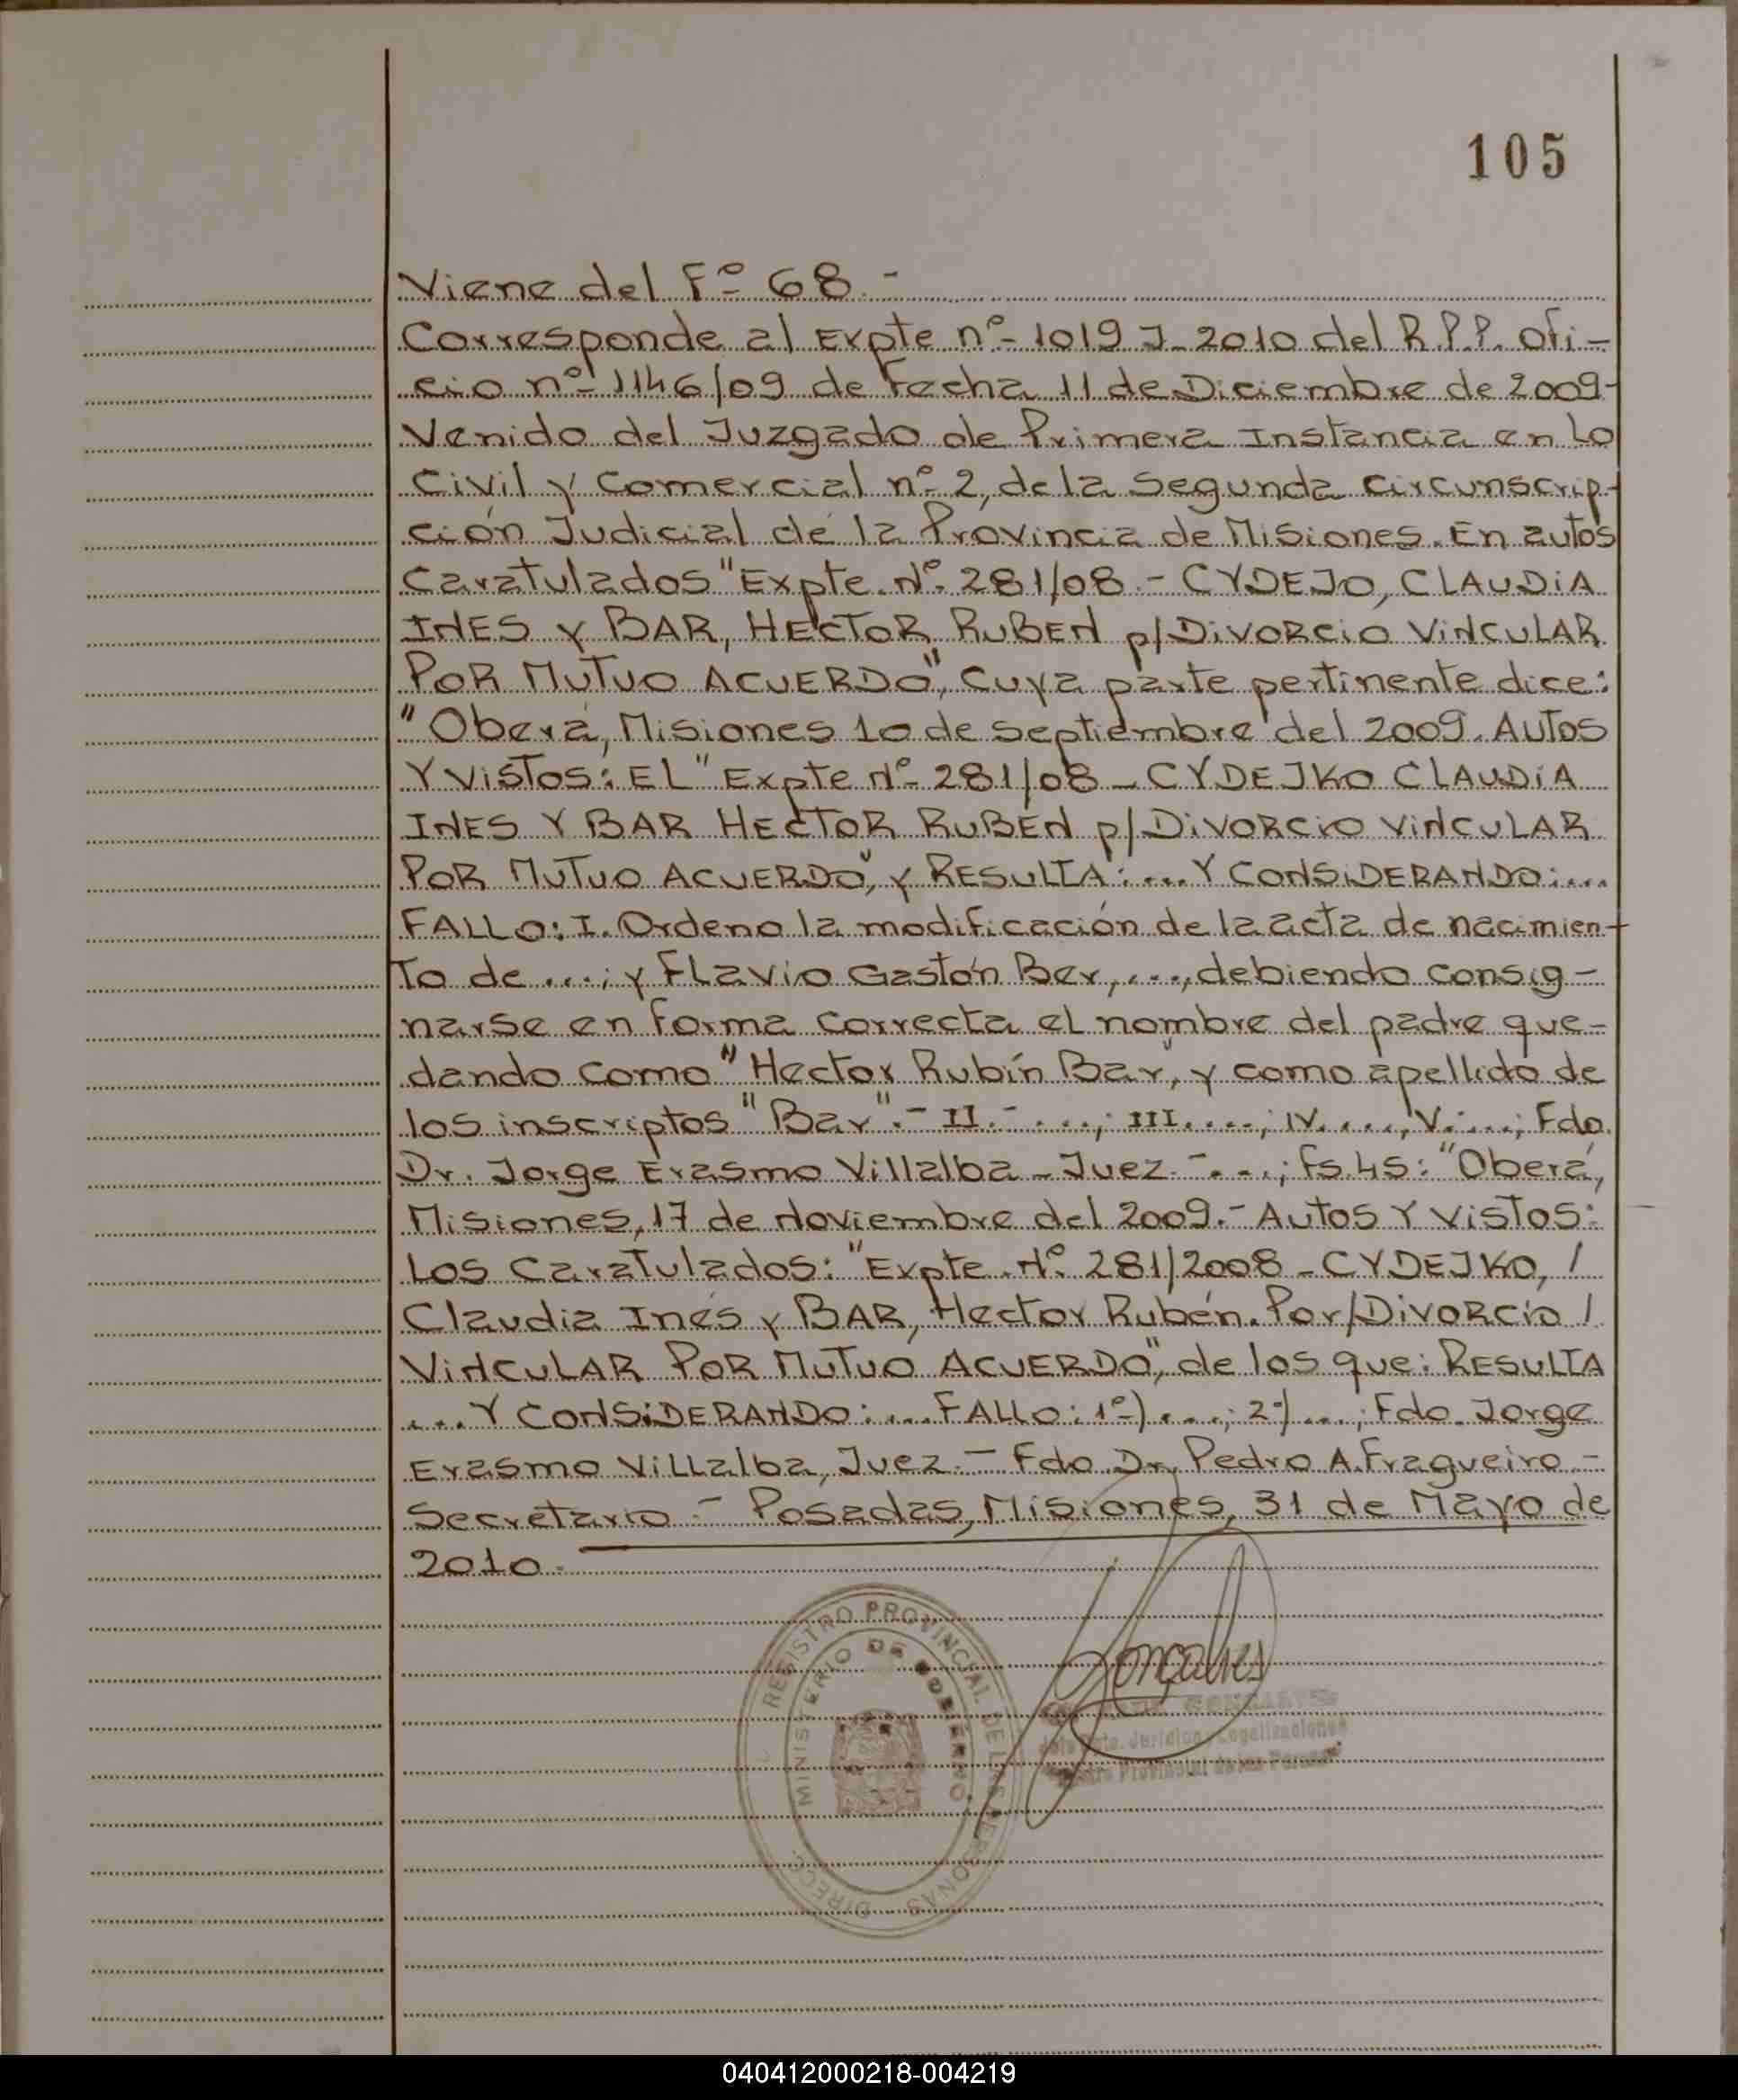 105
Viene del Fº 68.-
Corresponde al Expte nº- 1019 J-2010 del R.P.P. Ofi-
cio nº- 1146/09 de Fecha 11 de Diciembre de 2009-
Venido del Juzgado de Primera Instancia en Lo
Civil y Comercial nº- 2, de la Segunda Circunscrip-
ción Judicial de la Provincia de Misiones. En autos
Caratulados "Expte. Nº. 281/08.- CYDEJO, CLAUDIA
INES Y BAR, HECTOR RUBEN p/DIVORCIO VINCULAR
POR MUTUO ACUERDO", Cuya parte pertinente dice:
"Oberá, Misiones 10 de Septiembre del 2009. AUTOS
Y VISTOS: EL "Expte Nº- 281/08 - CYDEJKO CLAUDIA
INES Y BAR HECTOR RUBEN p/DIVORCIO VINCULAR
POR MUTUO ACUERDO", Y RESULTA:.... Y CONSIDERANDO:....
FALLO: I. Ordeno la modificación de la acta de nacimien-
to de ...; y Flavio Gastón Ber, ..., debiendo consig-
narse en forma correcta el nombre del padre que-
dando como "Hector Rubín Bar", y como apellido de
los inscriptos "Bar".- II.- ....; III.....; IV....., V.....; Fdo.
Dr. Jorge Erasmo Villalba - Juez.-....; Fs. 45: "Oberá,
Misiones, 17 de Noviembre del 2009.- AUTOS Y VISTOS:
Los Caratulados: "Expte. Nº. 281/2008 - CYDEJKO, /
Claudia Inés y BAR, Hector Rubén. Por/DIVORCIO /
VINCULAR POR MUTUO ACUERDO", de los que: RESULTA
.... Y CONSIDERANDO:....FALLO: 1º-)....; 2º)....; Fdo. Jorge
Erasmo Villalba, Juez.- Fdo. Dr. Pedro A. Fragueiro -
Secretario - Posadas, Misiones, 31 de Mayo de
2010.-
DIRECC. REGISTRO PROVINCIAL DE LAS PERSONAS
MINISTERIO DE GOBIERNO
Gonçalves
Juridico y Legalizaciones
Provincial de las Personas
040412000218-004219